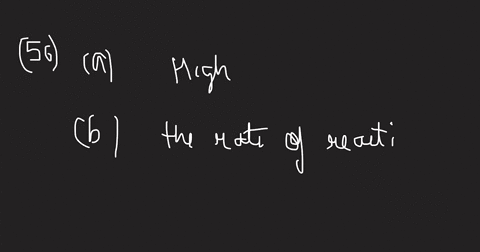 (56) (a) High
(b) the rate of reacti